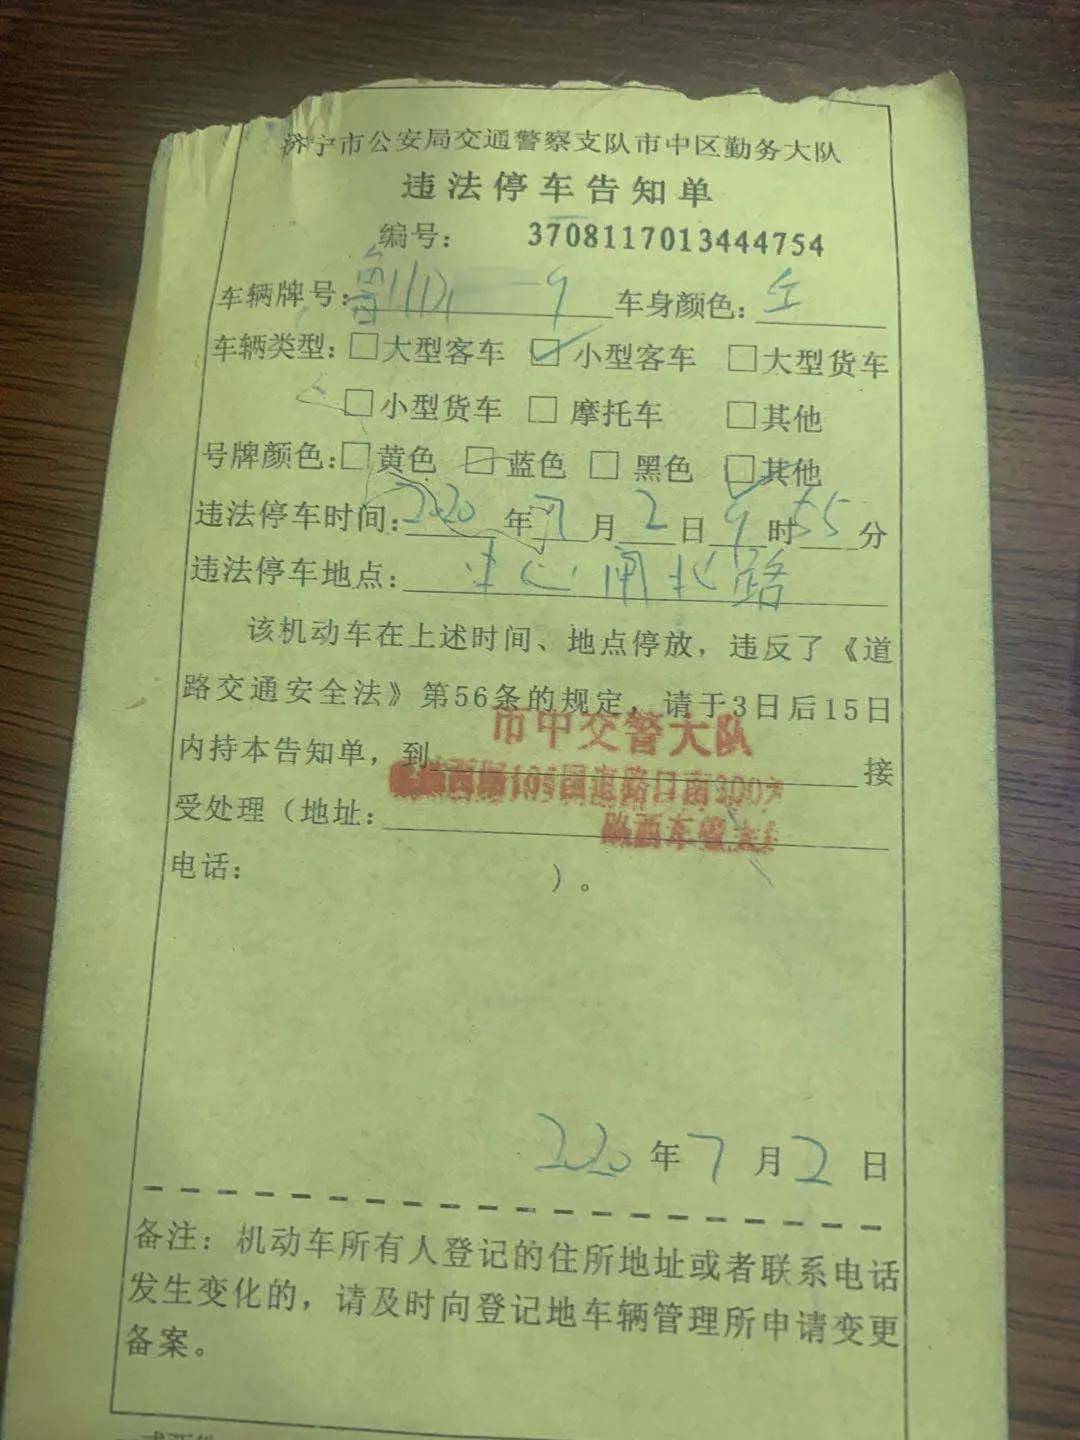 济宁市公安局交通警察支队市中区勤务大队
违法停车告知单
编号： 3708117013444754
车辆牌号：鲁 9 车身颜色：
车辆类型：□大型客车 ☑小型客车 □大型货车
□小型货车 □摩托车 □其他
号牌颜色：□黄色 □蓝色 □黑色 ☑其他
违法停车时间：2020年7月2日9时55分
违法停车地点： 闸北路
该机动车在上述时间、地点停放，违反了《道
路交通安全法》第56条的规定，请于3日后15日
内持本告知单，到 接
市中交警大队
受处理（地址：
电话： ）。
2020年7月2日
备注：机动车所有人登记的住所地址或者联系电话
发生变化的，请及时向登记地车辆管理所申请变更
备案。